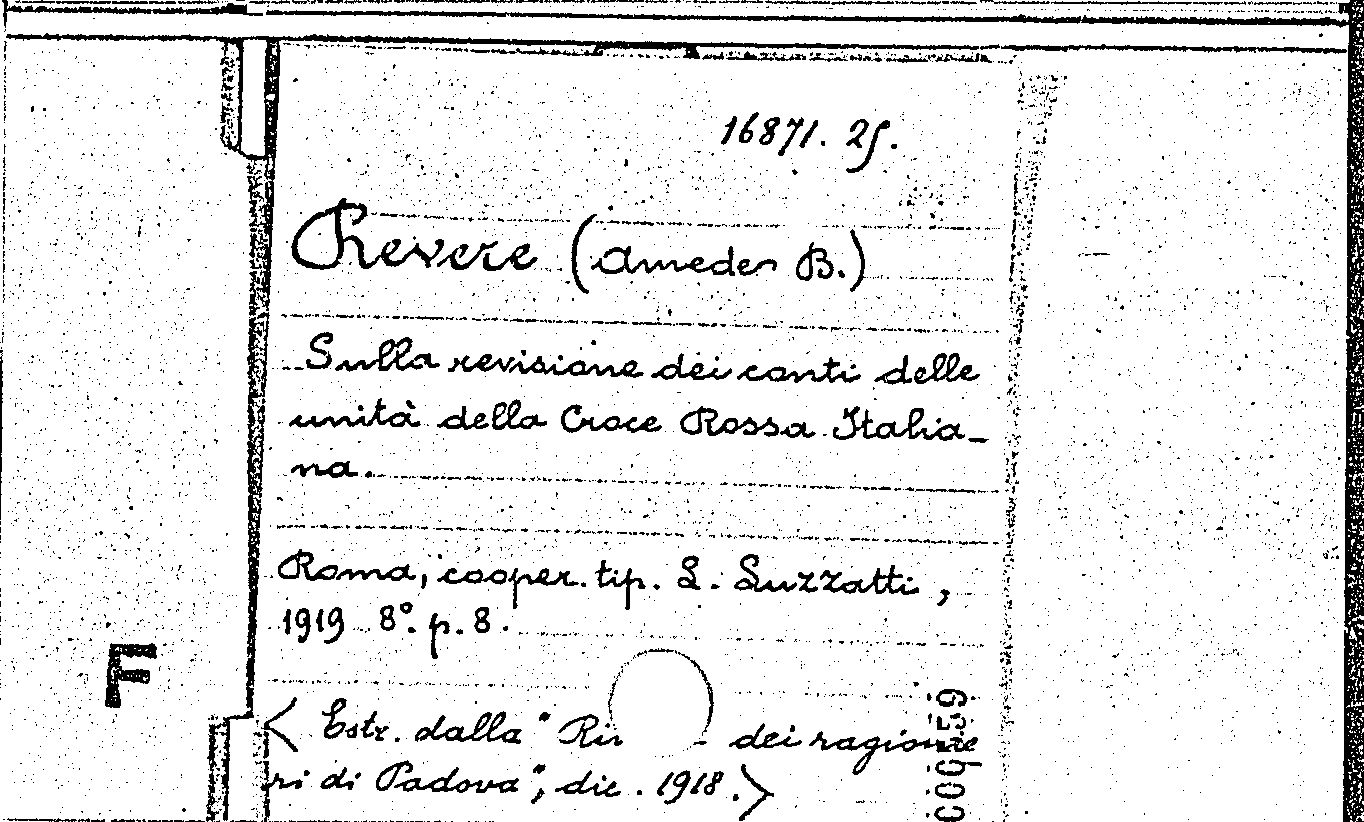 16871. 25.
Revere (Amedeo B.)
Sulla revisione dei conti delle
unità della Croce Rossa Italia-
na.
Roma, cooper. tip. L. Luzzatti,
1919 8°. p. 8.
F
< Estr. dalla " dei ragionie
ri di Padova", dic. 1918.>